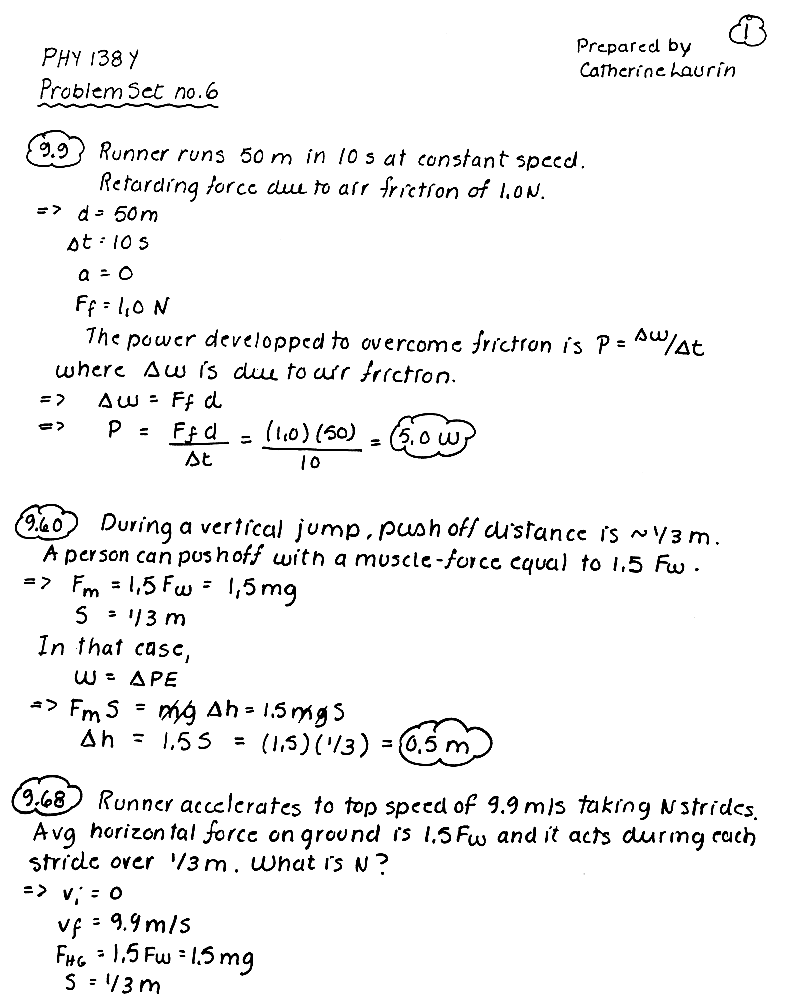 1
Prepared by
Catherine Laurin
PHY 138Y
Problem Set no.6
9.9 Runner runs 50 m in 10 s at constant speed.
Retarding force due to air friction of 1.0N.
=> d = 50m
Δt = 10 s
a = 0
Ff = 1,0 N
The power developped to overcome friction is P = Δw/Δt
where Δw is due to air friction.
=> Δw = Ff d
=> P = Ff d / Δt = (1,0)(50) / 10 = 5,0 W
9.60 During a vertical jump, push off distance is ~ 1/3 m.
A person can push off with a muscle-force equal to 1.5 Fw.
=> Fm = 1,5 Fw = 1,5 mg
S = 1/3 m
In that case,
W = ΔPE
=> Fm S = mg Δh = 1.5 mg S
Δh = 1.5 S = (1,5)(1/3) = 0,5 m
9.68 Runner accelerates to top speed of 9.9 m/s taking N strides.
Avg horizontal force on ground is 1.5 Fw and it acts during each
stride over 1/3 m. What is N?
=> vi = 0
vf = 9.9 m/s
FHG = 1,5 Fw = 1.5 mg
S = 1/3 m